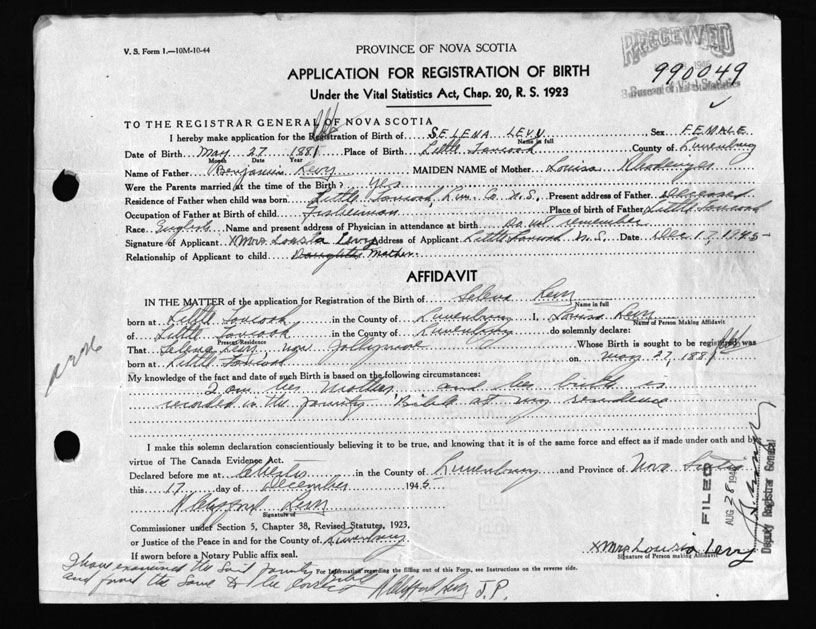 V. S. Form 1.—10M-10-44
PROVINCE OF NOVA SCOTIA
RECEIVED
990049
Bureau of Vital Statistics
APPLICATION FOR REGISTRATION OF BIRTH
Under the Vital Statistics Act, Chap. 20, R. S. 1923
TO THE REGISTRAR GENERAL OF NOVA SCOTIA
I hereby make application for the Registration of Birth of SELENA LEVY Sex FEMALE
Name in full
Date of Birth May 27 1881 Place of Birth Little Tancook County of Lunenburg
Month Date Year
Name of Father Benjamin Levy MAIDEN NAME of Mother Louisa
Were the Parents married at the time of the Birth? yes
Residence of Father when child was born Little Tancook Lun. Co. N.S. Present address of Father Deceased
Occupation of Father at Birth of child Fisherman Place of birth of Father Little Tancook
Race English Name and present address of Physician in attendance at birth Do not remember
Signature of Applicant X Mrs Louisa Levy Address of Applicant Little Tancook N.S. Date Dec 17, 1945
Relationship of Applicant to child Daughter Mother
AFFIDAVIT
IN THE MATTER of the application for Registration of the Birth of Selena Levy
Name in full
born at Little Tancook in the County of Lunenburg I, Louisa Levy
Name of Person Making Affidavit
of Little Tancook in the County of Lunenburg do solemnly declare:
Present Residence
That Selena Levy now Jollymore Whose Birth is sought to be registered was
born at Little Tancook on May 27, 1881
My knowledge of the fact and date of such Birth is based on the following circumstances:
I am her Mother and her birth is
recorded in the family Bible at my residence
I make this solemn declaration conscientiously believing it to be true, and knowing that it is of the same force and effect as if made under oath and by
virtue of The Canada Evidence Act.
Declared before me at Chester in the County of Lunenburg and Province of Nova Scotia
this 17 day of December 1945
R Clifford Levy
Signature of
Commissioner under Section 5, Chapter 38, Revised Statutes, 1923,
or Justice of the Peace in and for the County of Lunenburg
If sworn before a Notary Public affix seal.
X Mrs Louisia Levy
Signature of Person making Affidavit
For Information regarding the filling out of this Form, see Instructions on the reverse side.
I have examined the said family Bible
and found the same to be correct R Clifford Levy J.P.
FILED
AUG 28 194
Deputy Registrar General